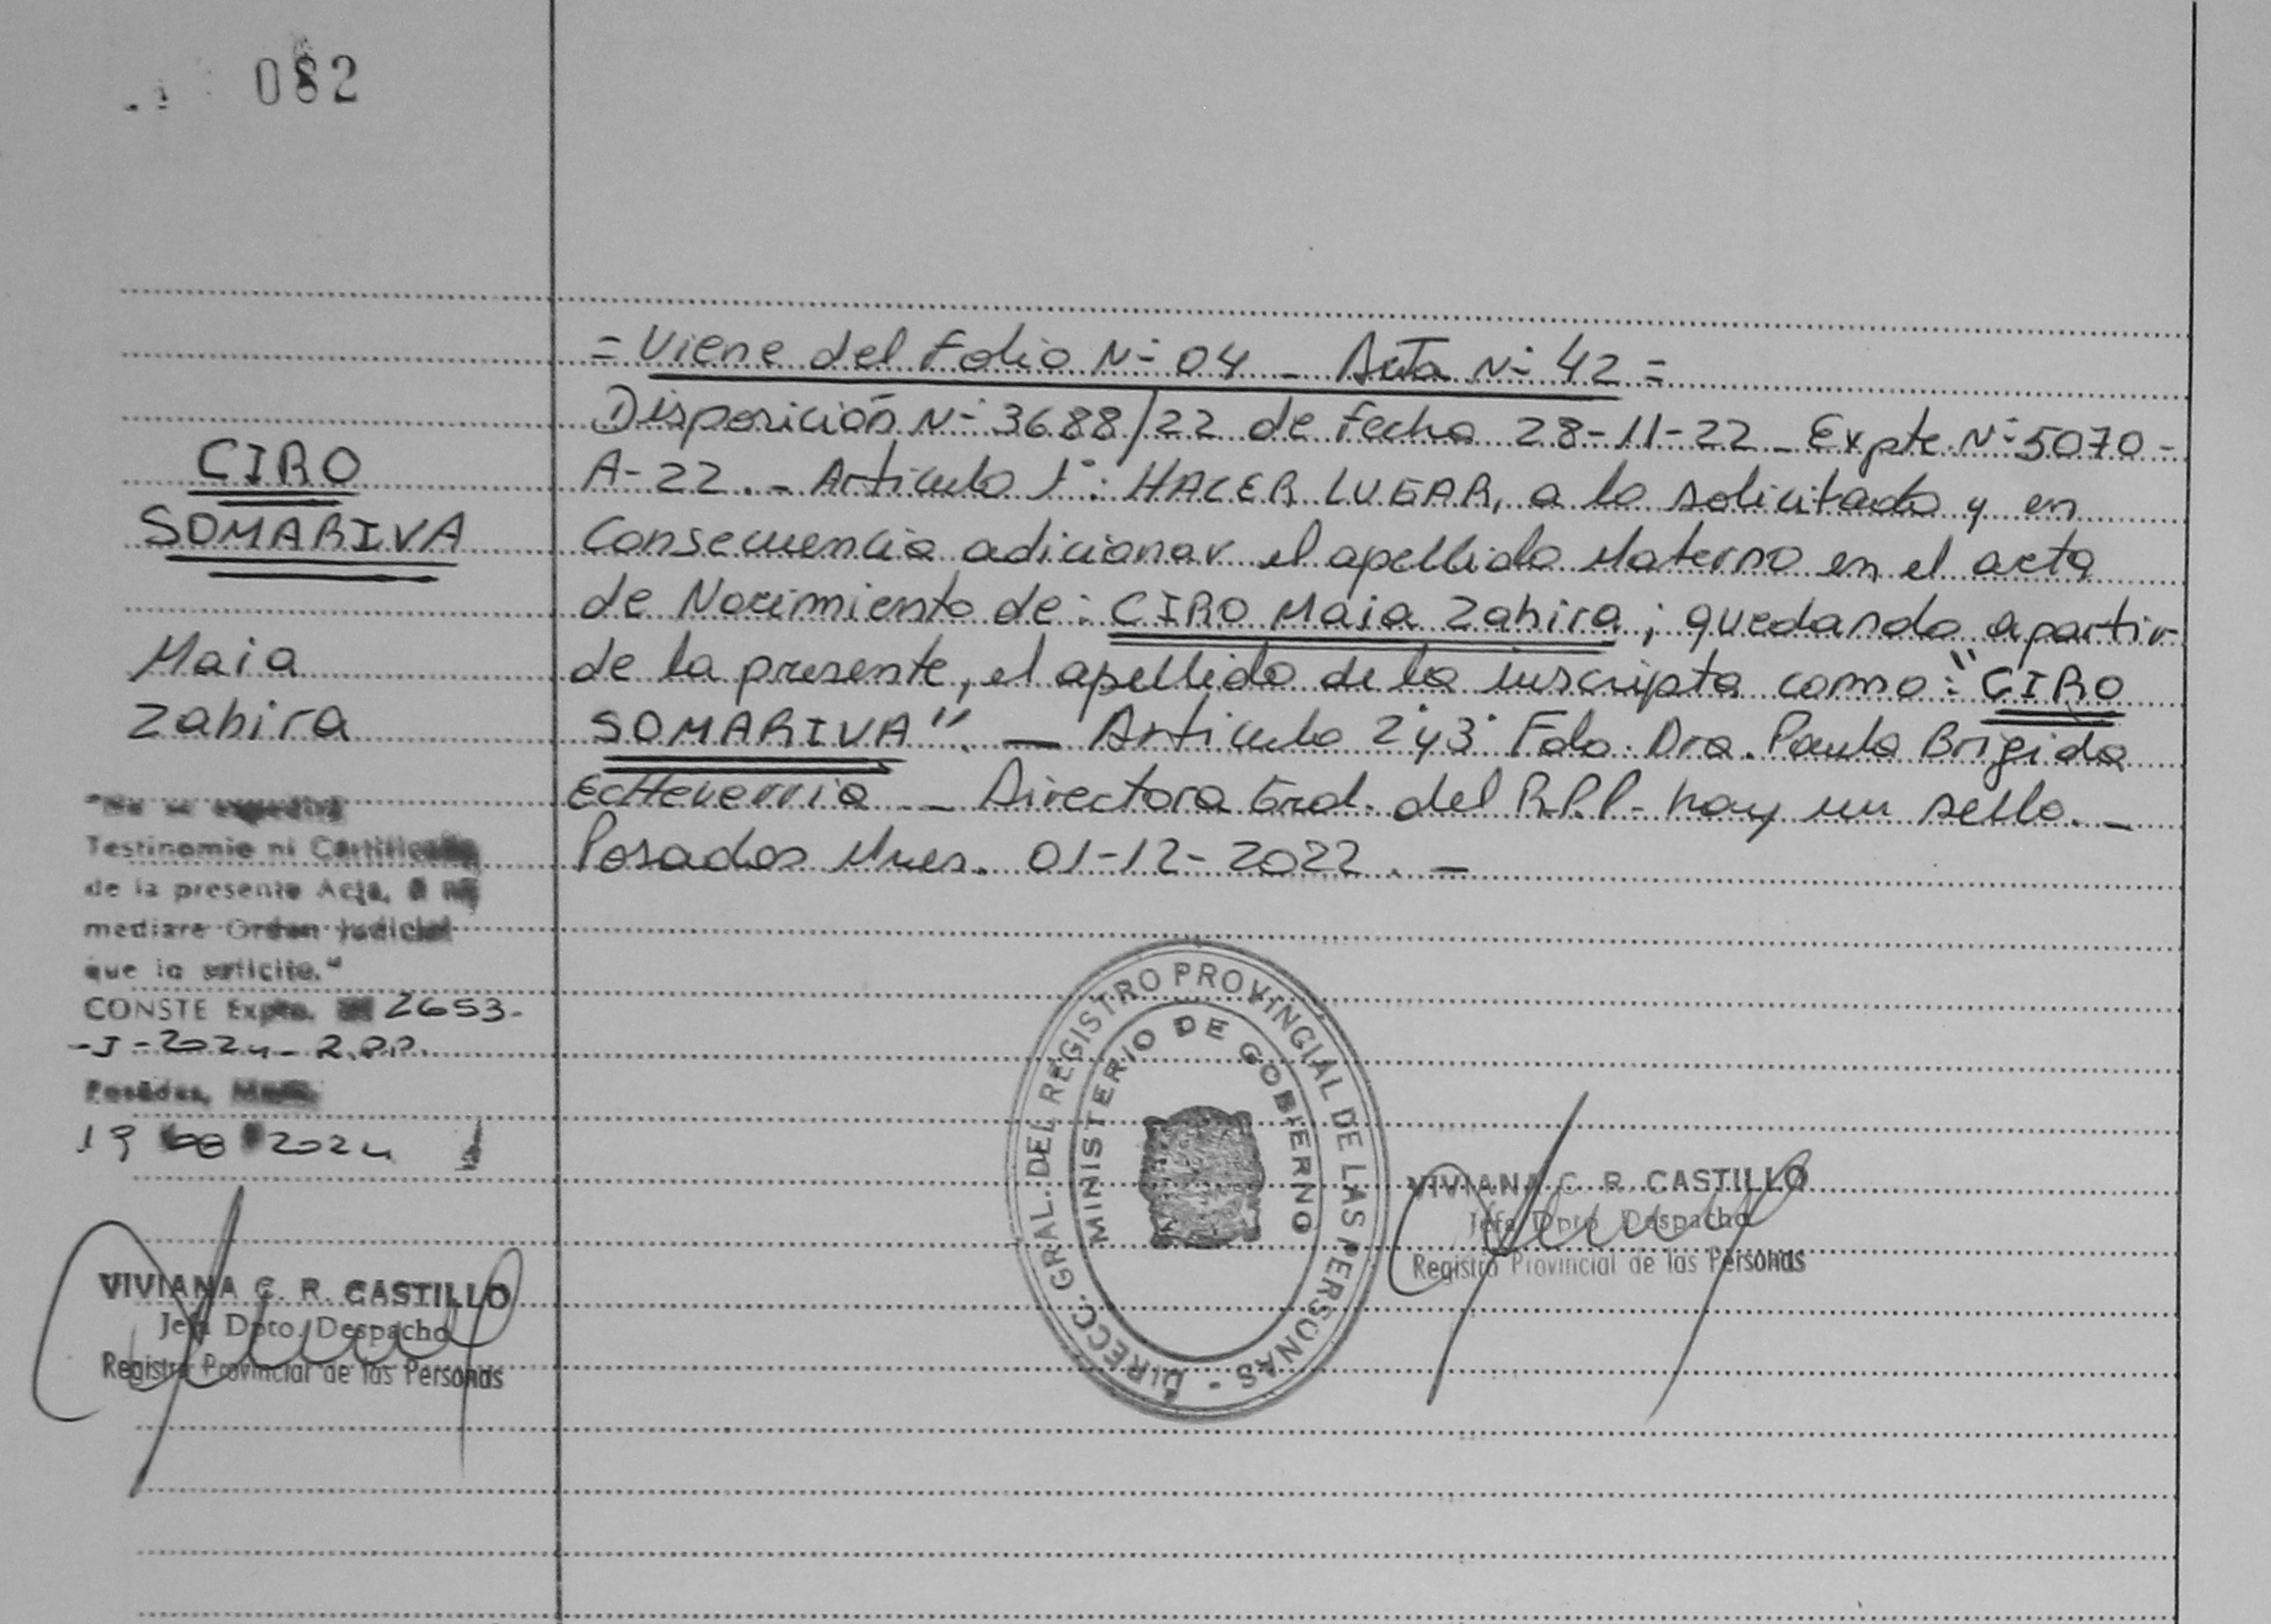 082
= Viene del Folio Nº 04 - Acta Nº 42 =
Disposición Nº 3688/22 de Fecha 28-11-22 - Expte. Nº 5070-
A-22. - Articulo 1º: HACER LUGAR, a lo solicitado y en
Consecuencia adicionar el apellido Materno en el acta
de Nacimiento de: CIRO Maia Zahira; quedando a partir
de la presente, el apellido de la inscripta como: "CIRO
SOMARIVA". — Articulo 2º y 3º Fdo. Dra. Paula Brigida
Echeverria - Directora Gral. del R.P.P - hay un sello. -
Posadas Mnes. 01-12-2022. -
CIRO
SOMARIVA
Maia
Zahira
"No se expedirá
Testinomio ni Certificado
de la presente Acta,
mediare Orden Judicial
que lo solicite."
CONSTE Expte. 2653-
-J-2024- R.P.P.
Posadas, Mnes.
19 08 2024
VIVIANA C. R. CASTILLO
Jefa Dpto. Despacho
Registro Provincial de las Personas
DIRECC. GRAL. DEL REGISTRO PROVINCIAL DE LAS PERSONAS -
MINISTERIO DE GOBIERNO
VIVIANA C. R. CASTILLO
Jefa Dpto. Despacho
Registro Provincial de las Personas